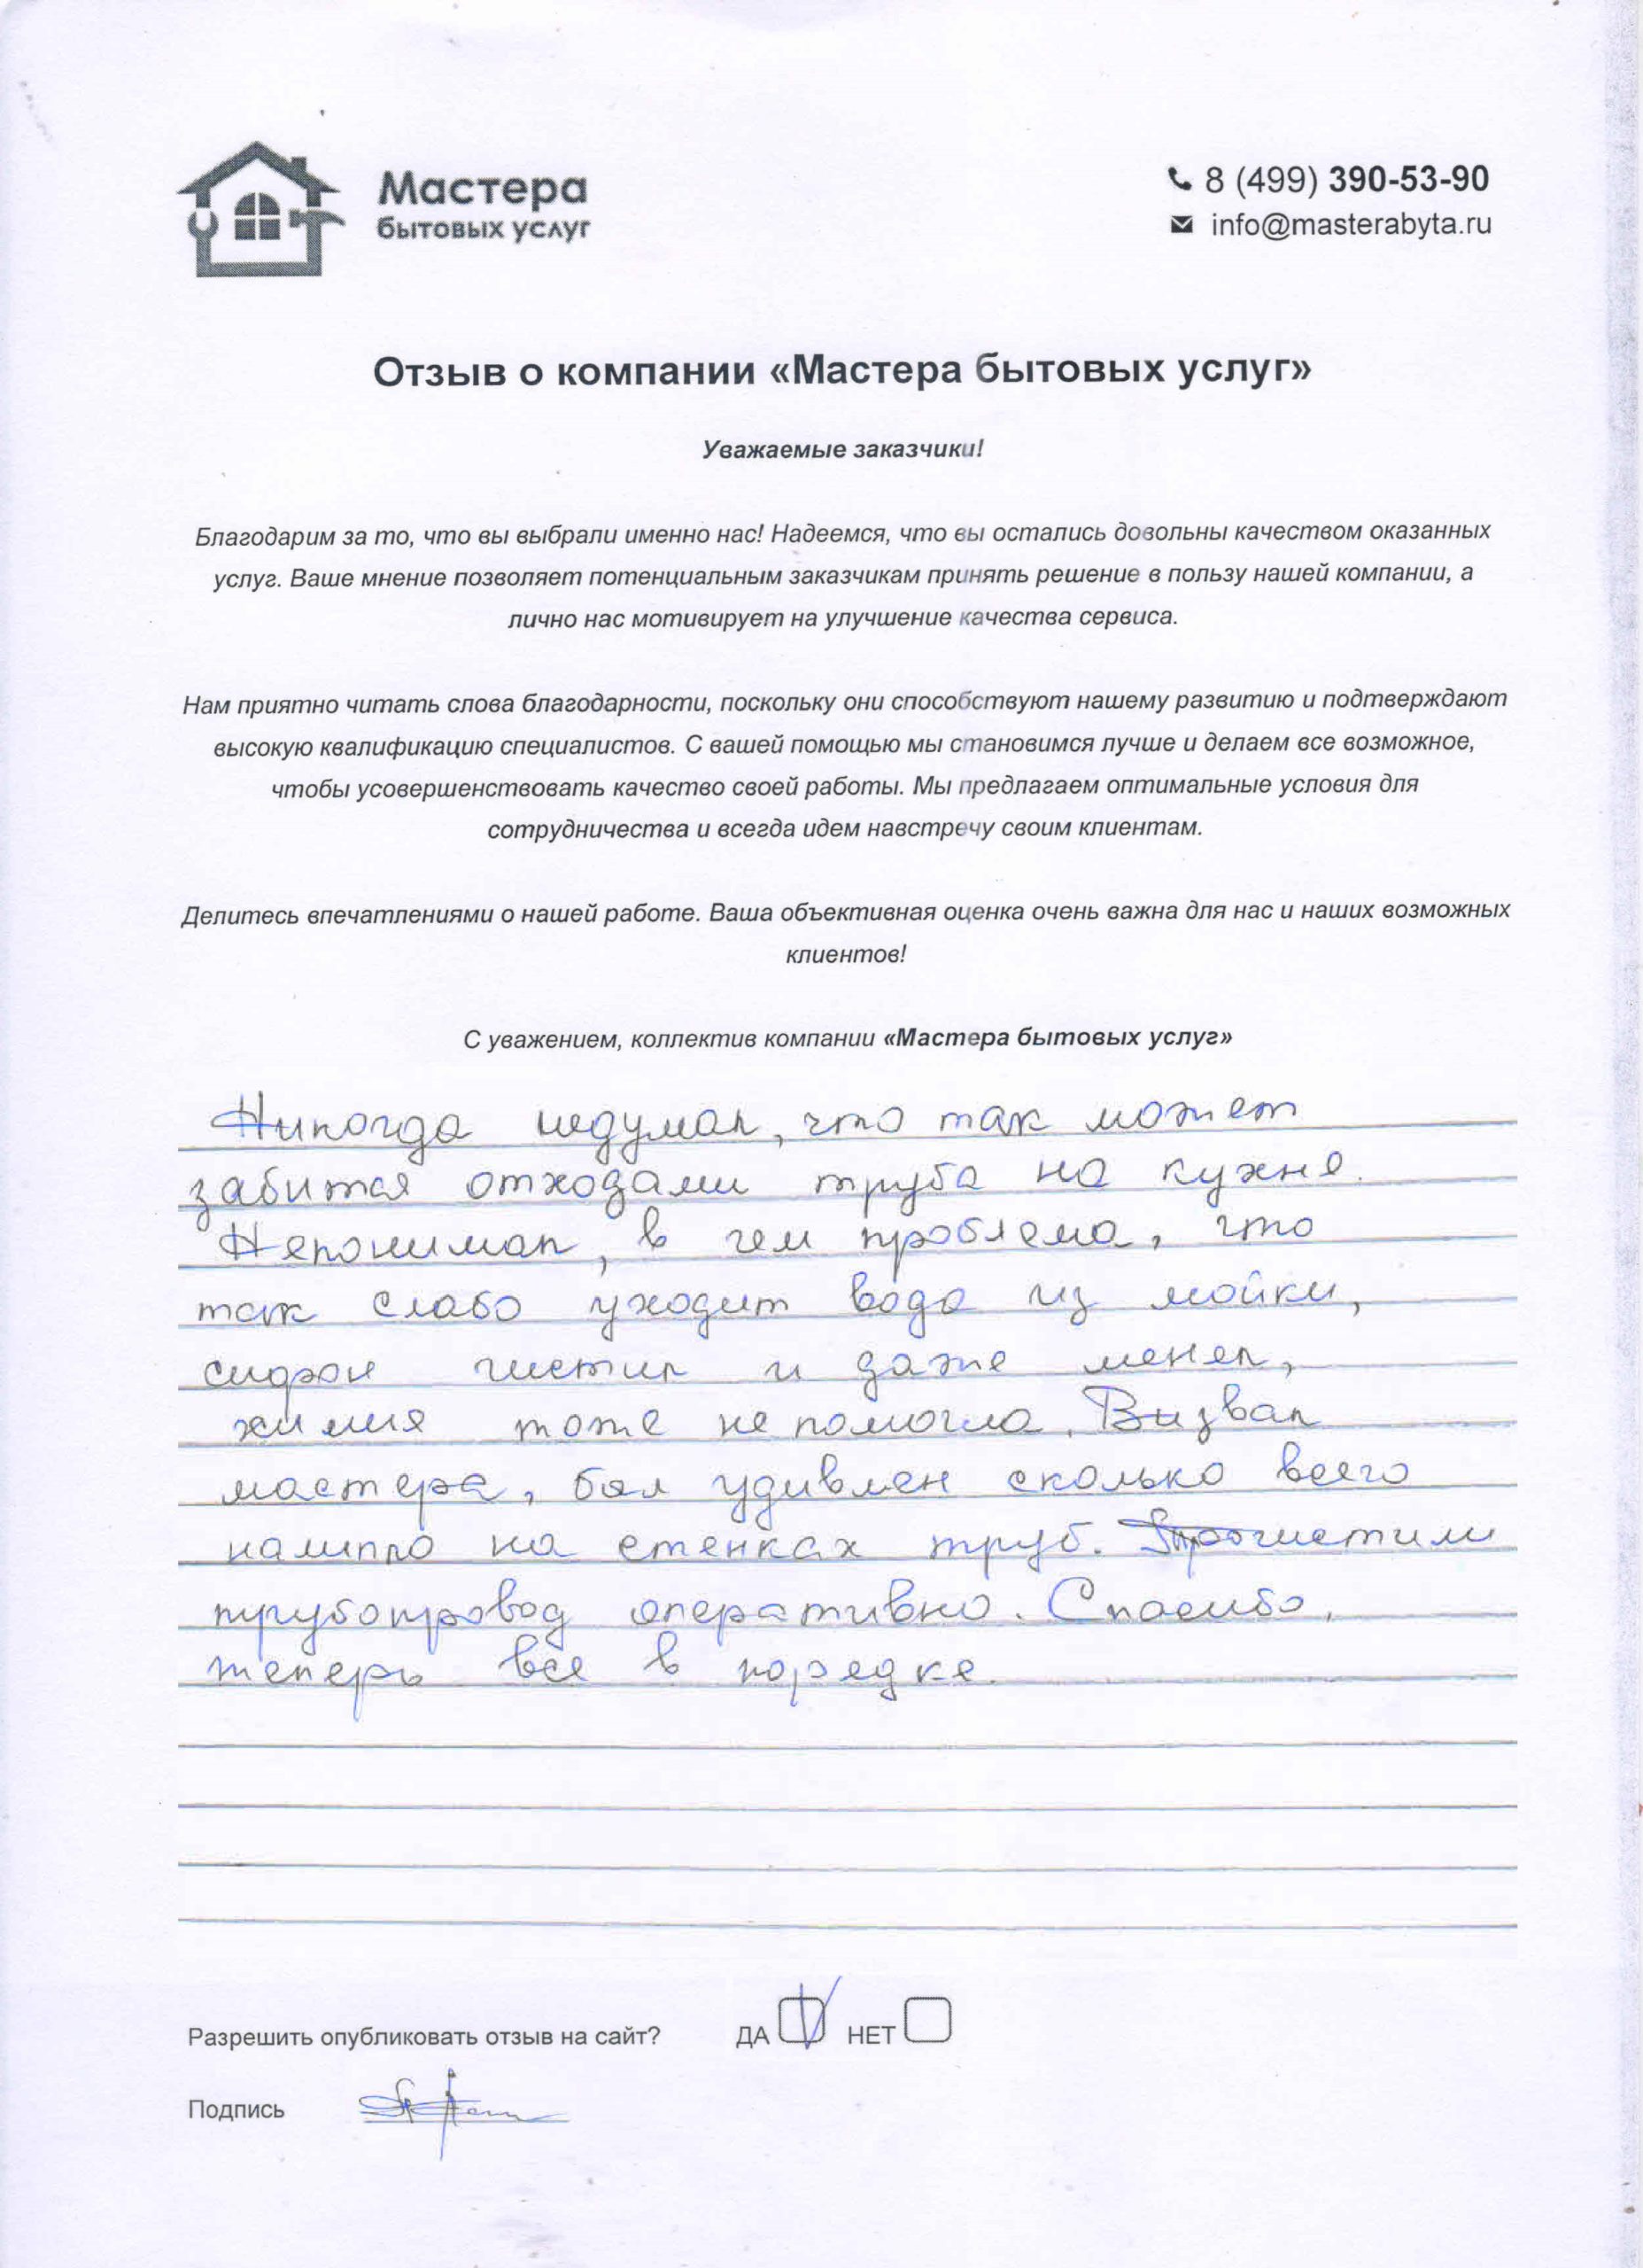 Мастера
бытовых услуг
8 (499) 390-53-90
info@masterabyta.ru
Отзыв о компании «Мастера бытовых услуг»
Уважаемые заказчики!
Благодарим за то, что вы выбрали именно нас! Надеемся, что вы остались довольны качеством оказанных
услуг. Ваше мнение позволяет потенциальным заказчикам принять решение в пользу нашей компании, а
лично нас мотивирует на улучшение качества сервиса.
Нам приятно читать слова благодарности, поскольку они способствуют нашему развитию и подтверждают
высокую квалификацию специалистов. С вашей помощью мы становимся лучше и делаем все возможное,
чтобы усовершенствовать качество своей работы. Мы предлагаем оптимальные условия для
сотрудничества и всегда идем навстречу своим клиентам.
Делитесь впечатлениями о нашей работе. Ваша объективная оценка очень важна для нас и наших возможных
клиентов!
С уважением, коллектив компании «Мастера бытовых услуг»
Никогда недумал, что так может
забится отходами труба на кухне.
Непонимал, в чем проблема, что
так слабо уходит вода из мойки,
сифон чистил и даже менел,
химия тоже не помогла. Визвал
мастера, бал удивлен сколько всего
налипло на стенках труб. Прочистили
трубопровод оперативно. Спасибо,
теперь все в порядке.
Разрешить опубликовать отзыв на сайт? ДА НЕТ
Подпись